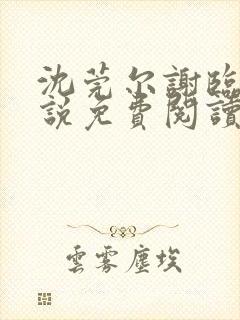 沈莞尔謝臨
說免費閱讀
雲霧塵埃